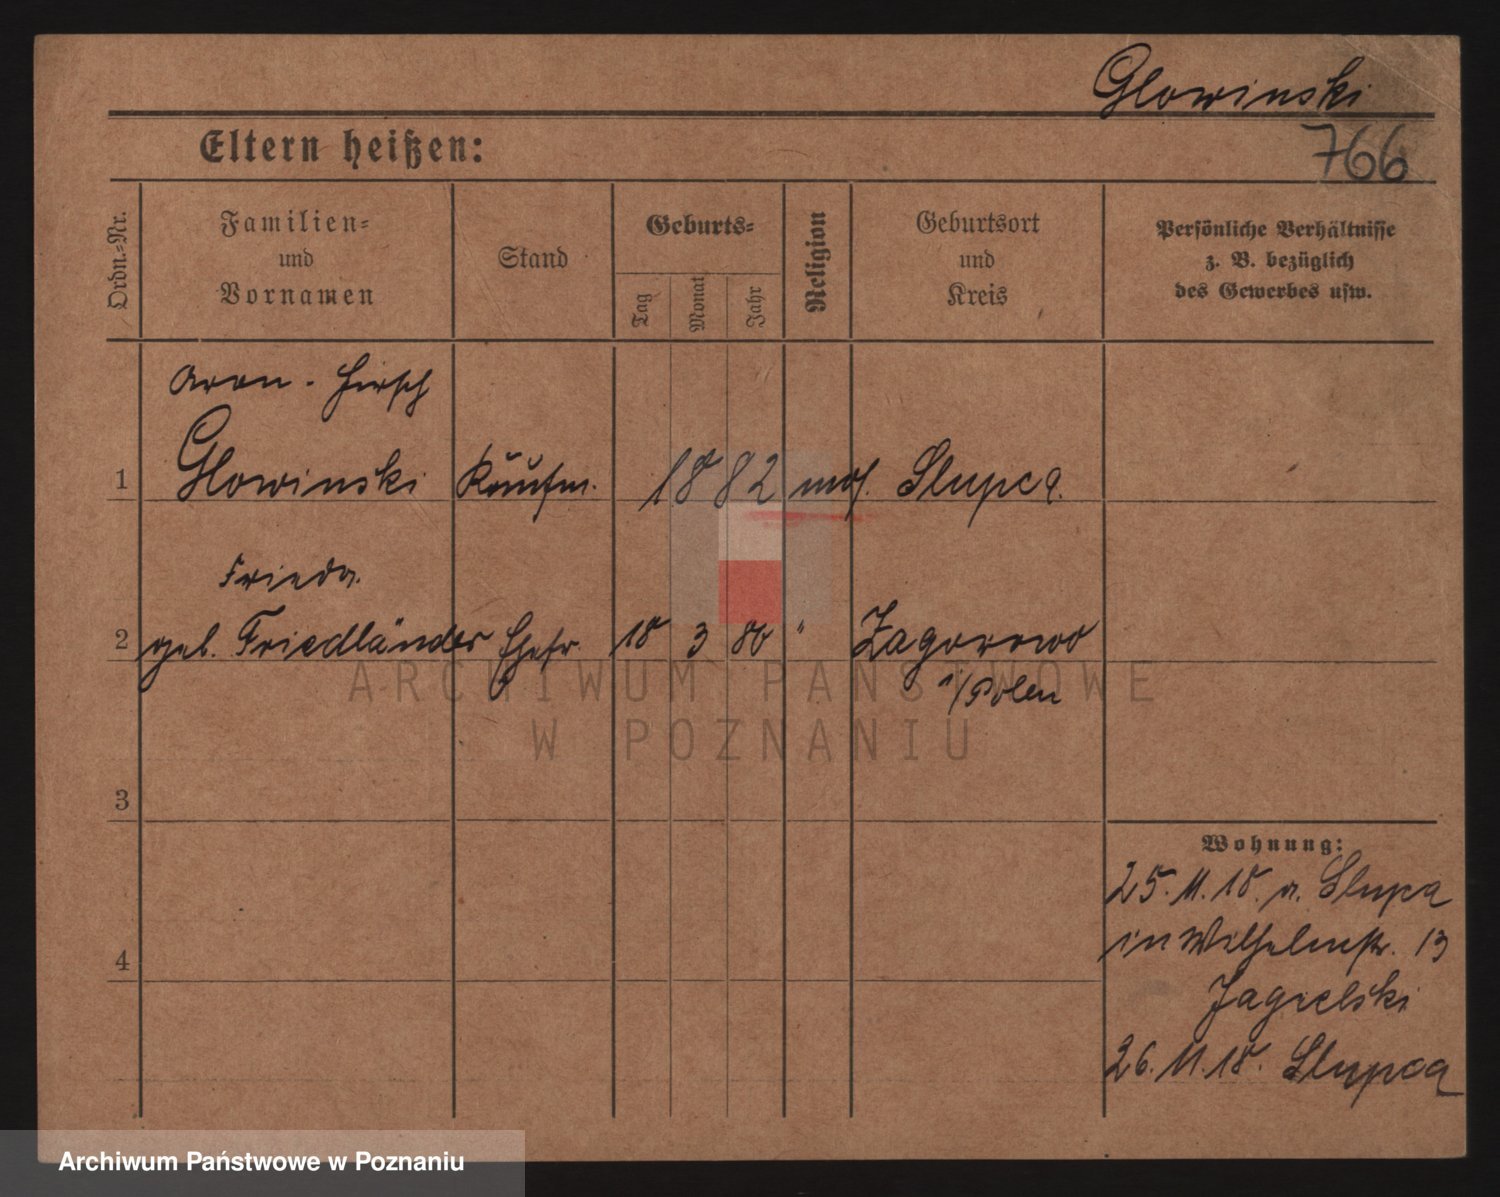 Glowinski
766
Eltern heißen:
Ordn.-Nr.
Familien-
und
Vornamen
Stand
Geburts-
Tag
Monat
Jahr
Religion
Geburtsort
und
Kreis
Persönliche Verhältnisse
z. B. bezüglich
des Gewerbes usw.
Aron - Hirsch
1 Glowinski Kaufm. 1882 mos. Slupca.
Frieda
2 geb. Friedländer Ehefr. 18 3 86 " Zagorowo
i/Polen
3
Wohnung:
25.11.18. a. Slupca
in Wilhelmstr. 13
4
Jagielski
26.11.18. Slupca
ARCHIWUM PAŃSTWOWE
W POZNANIU
Archiwum Państwowe w Poznaniu